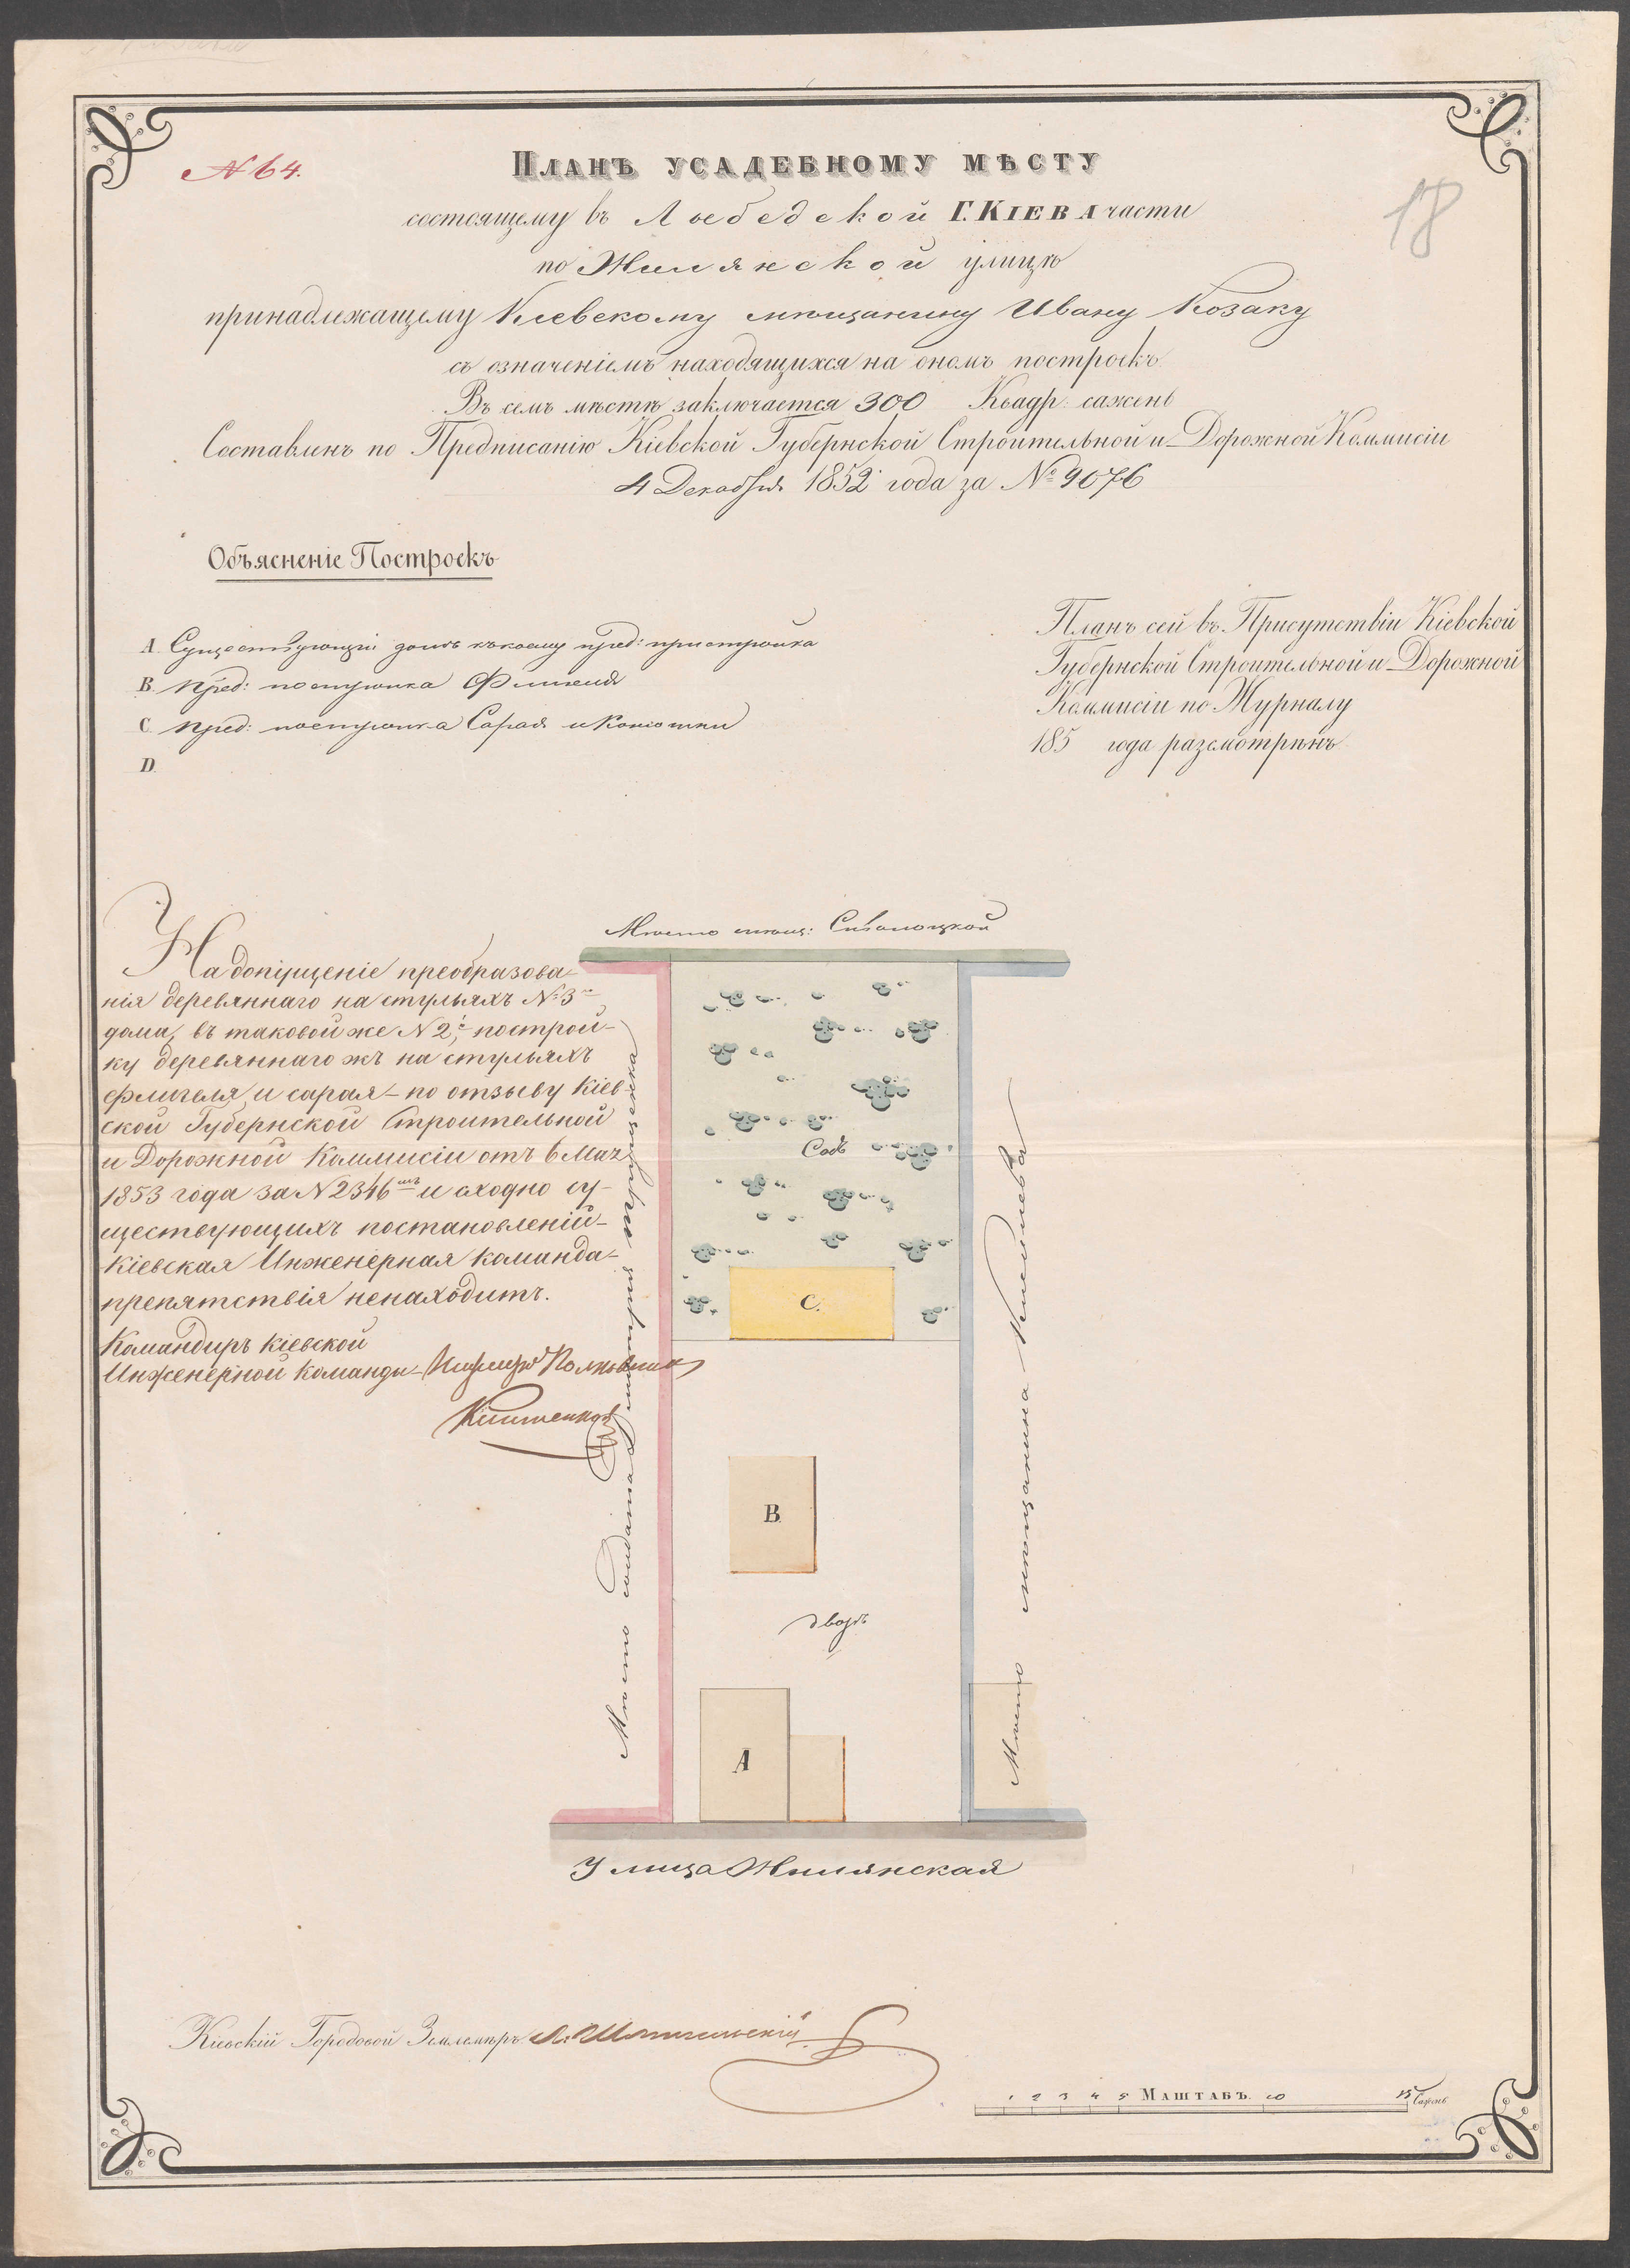 N 64.
18
Планъ усадебному мѣсту
состоящему въ Лыбедской Г. Кіева части
по Жилянской улицѣ
принадлежащему Кіевскому мѣщанину Ивану Козаку
съ означеніемъ находящихся на ономъ построекъ
Въ семъ мѣстѣ заключается 300 Квадр: сажень
Составленъ по Предписанію Кіевской Губернской Строительной и Дорожной Коммисіи
4 Декабря 1852 года за № 9076
Объясненіе Построекъ
A. Существующій домъ къ коему пред: пристройка
B. пред: постройка Флигеля
C. пред: постройка Сарая и Конюшни
D.
Планъ сей въ Присутствіи Кіевской
Губернской Строительной и Дорожной
Коммисіи по Журналу
185 года разсмотрѣнъ
На допущеніе преобразова-
нія деревяннаго на стульяхъ № 3го
дома, въ таковой же N 2й, построй-
ку деревяннаго жъ на стульяхъ
флигеля и сарая – по отзыву Кіев-
ской Губернской Строительной
и Дорожной Коммисіи отъ 6 Мая
1853 года за N 2346мъ и сходно су-
ществующихъ постановленій –
Кіевская Инженерная Команда –
препятствія ненаходитъ.
Командиръ Кіевской
Инженерной Команды – Инженеръ Полковникъ
Мѣсто мѣщ:
Садъ
C.
B.
дворъ
A
Мѣсто солдата
Мѣсто мѣщанина
Улица Жилянская
Кіевскій Городовой Землемѣръ
1 2 3 4 5 Маштабъ. 10 15 Сажень